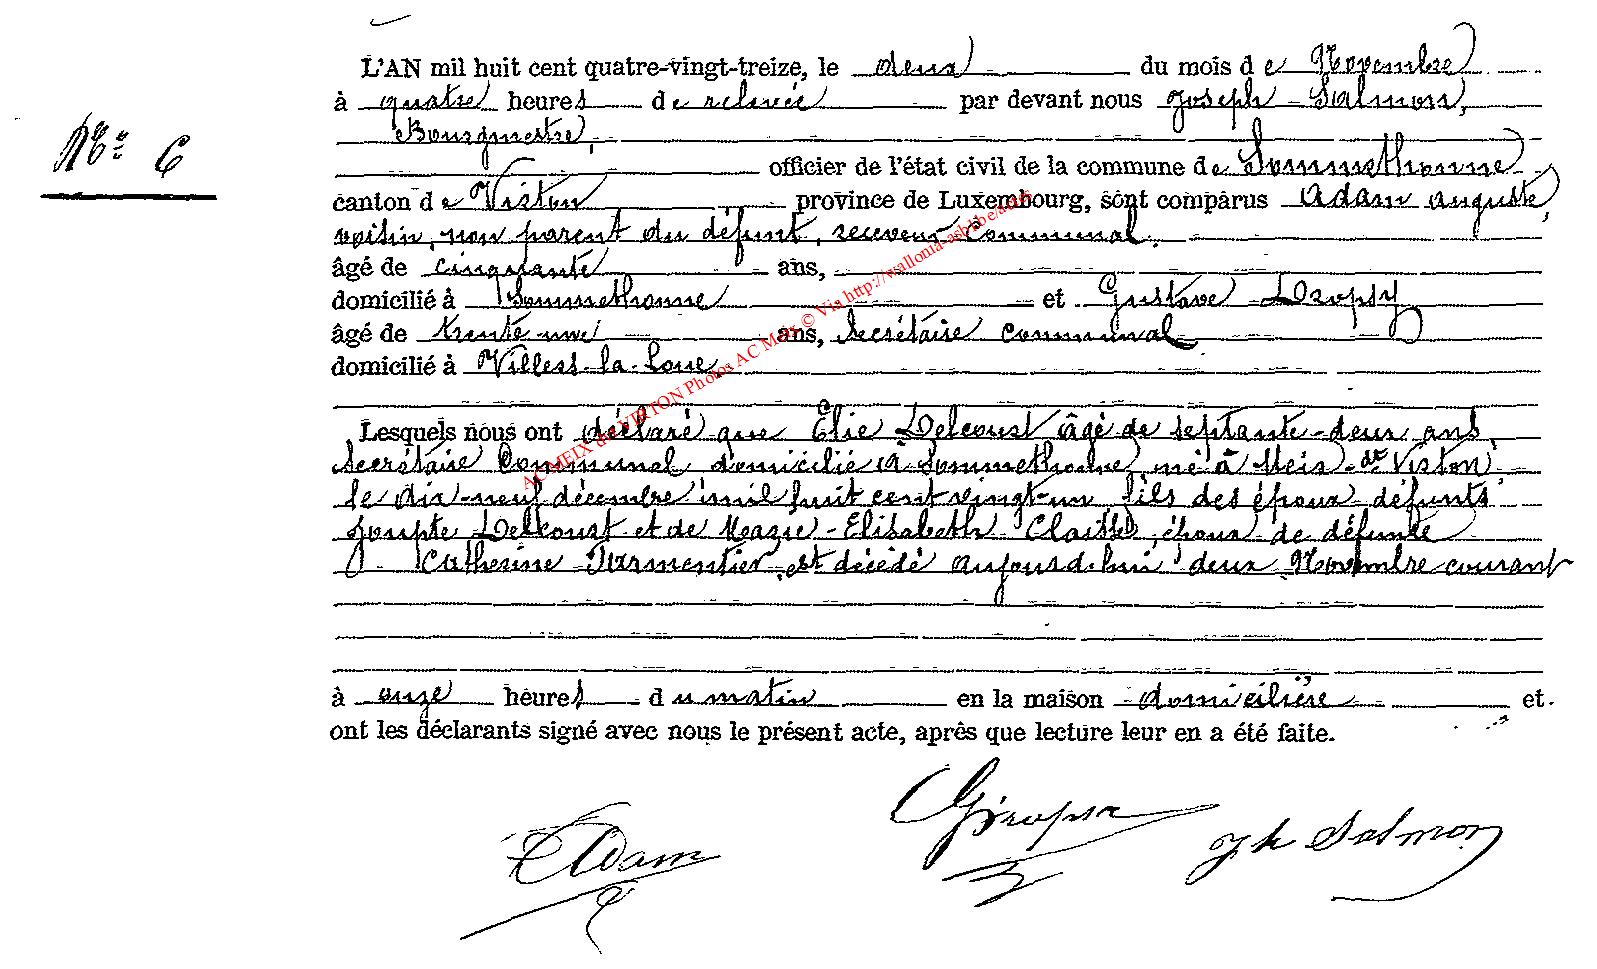 L'AN mil huit cent quatre-vingt-treize, le deux du mois de Novembre
à quatre heures de relevée par devant nous Joseph Salmon,
Bourgmestre,
N° 6
officier de l'état civil de la commune de Sommethonne
canton de Virton province de Luxembourg, sont comparus Adam Auguste,
voisin, non parent du défunt, receveur communal,
âgé de cinquante ans,
domicilié à Sommethonne et Gustave Dropsy
âgé de trente-une ans, secrétaire communal
domicilié à Villers-la-Loue
ACMEIX dvt VIRTON Photos AC Meix © Via http://wallonia-asbl.be/actes
Lesquels nous ont déclaré que Elie Delcourt âgé de septante-deux ans,
secrétaire communal domicilié à Sommethonne, né à Meix-dt-Virton
le dix-neuf décembre mil huit cent vingt-un fils des époux défunts
Delcourt et de Marie-Elisabeth époux de défunte
Catherine Parmentier, est décédé aujourd'hui deux Novembre courant
à onze heures du matin en la maison domicilière et
ont les déclarants signé avec nous le présent acte, après que lecture leur en a été faite.
GDropsy
Adam
Jh Salmon